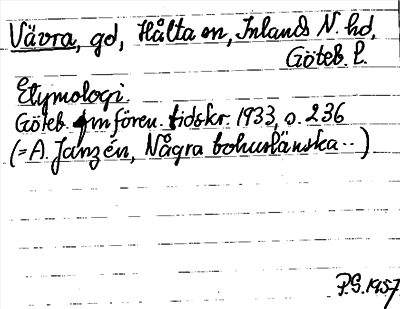 Vävra, gd, Hålta sn, Inlands N. hd,
Göteb. l.
Etymologi.
Göteb. fmfören. tidskr. 1933, s. 236
(=A. Janzén, Några bohuslänska..)
P.G. 1957